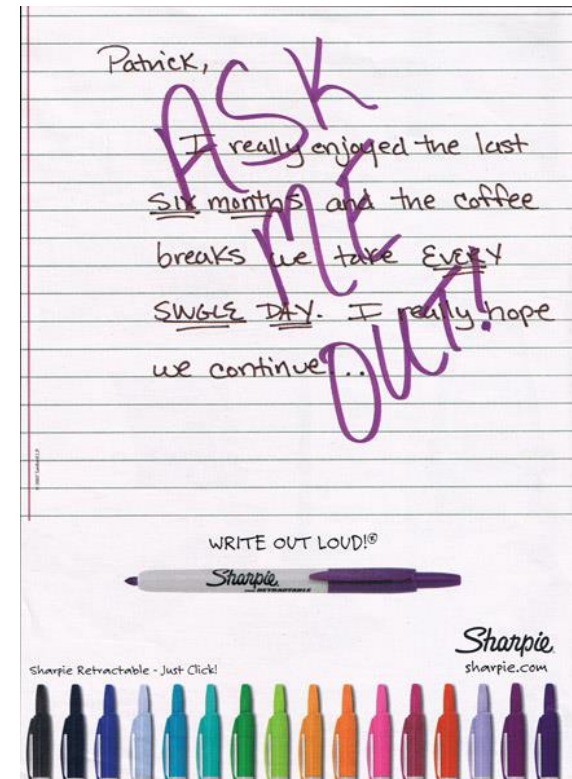 Patrick,
I really enjoyed the last
SIX months and the coffee
breaks we take EVERY
SINGLE DAY. I really hope
we continue...
ASK
ME
OUT!
WRITE OUT LOUD!®
Sharpie
RETRACTABLE
Sharpie
Sharpie Retractable - Just Click!
sharpie.com